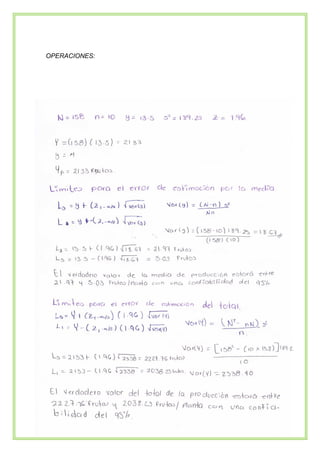 OPERACIONES:
N = 158 n = 10 y = 13.5 s² = 139.29 z = 1.96
Y = (158) (13.5) = 2133
y = M
Yp = 2133 frutos
Limites para el error de estimación por la media
Ls = y + (z, -α/2) √var(y) Var (y) = (N-n) s²
Nn
Li = y - (z, -α/2) √var(y)
Var(y) = (158-10) 139.29 = 13.67
(158) (10)
Ls = 13.5 + (1.96) √13.67 = 21.97 frutos
Ls = 13.5 - (1.96) √13.67 = 5.03 frutos
El verdadero valor de la media de producción estará entre
21.97 y 5.03 frutos/planta con una confiabilidad del 95%
Limites para el error de estimación del total.
Ls = Y + (z, -α/2) (1.96) √var(Y)
Li = Y - (z, -α/2) (1.96) √var(Y) Var(Y) = (N² - nN) s²
n
Var(Y) = [158² - (10 x 158)] 139.2
10
Ls = 2133 + (1.96) √2338 = 2227.76 frutos
Li = 2133 - (1.96 √2338 = 2038.23 frutos Var(Y) = 2338.40
El verdadero valor del total de la producción estará entre
2227.76 frutas y 2038.23 frutas/planta con una confia-
bilidad del 95%